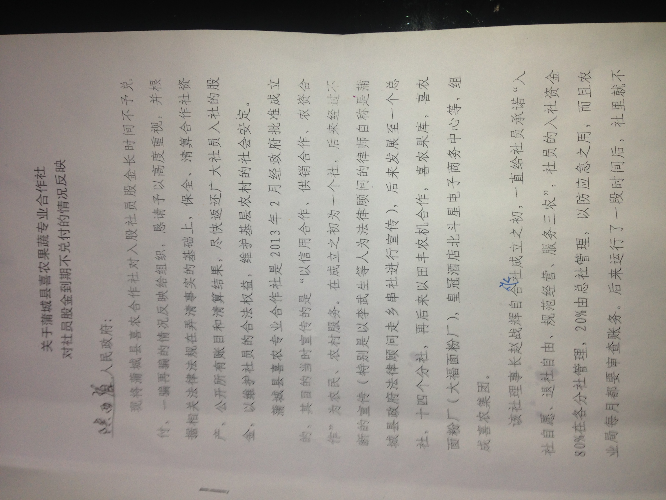 关于蒲城县喜农果蔬专业合作社
对社员股金到期不兑付的情况反映
陕西省人民政府：
现将蒲城县喜农合作社对入股社员股金长时间不予兑
付、一骗再骗的情况反映给组织，恳请予以高度重视，并根
据相关法律法规在弄清事实的基础上，保全、清算合作社资
产，公开所有账目和清算结果，尽快返还广大社员入社的股
金，以维护社员的合法权益，维护基层农村的社会安定。
蒲城县喜农专业合作社是2013年2月经政府批准成立
的，其目的当时宣传的是“以信用合作、供销合作、农资合
作”为农民、农村服务。在成立之初为一个社，后来经过不
断的宣传（特别是以李武生等人为法律顾问的律师自称是蒲
城县政府法律顾问走乡串社进行宣传），后来发展至一个总
社，十四个分社，再后来以田丰农机合作，喜农果库，喜农
面粉厂（大福面粉厂），皇冠酒店北斗星电子商务中心等，组
成喜农集团。
该社理事长赵战辉自合作社成立之初，一直给社员承诺“入
社自愿、退社自由、规范经营、服务三农”，社员的入社资金
80%在各分社管理，20%由总社管理，以防应急之用，而且农
业局每月都要审查账务。后来运行了一段时间后，社里就不